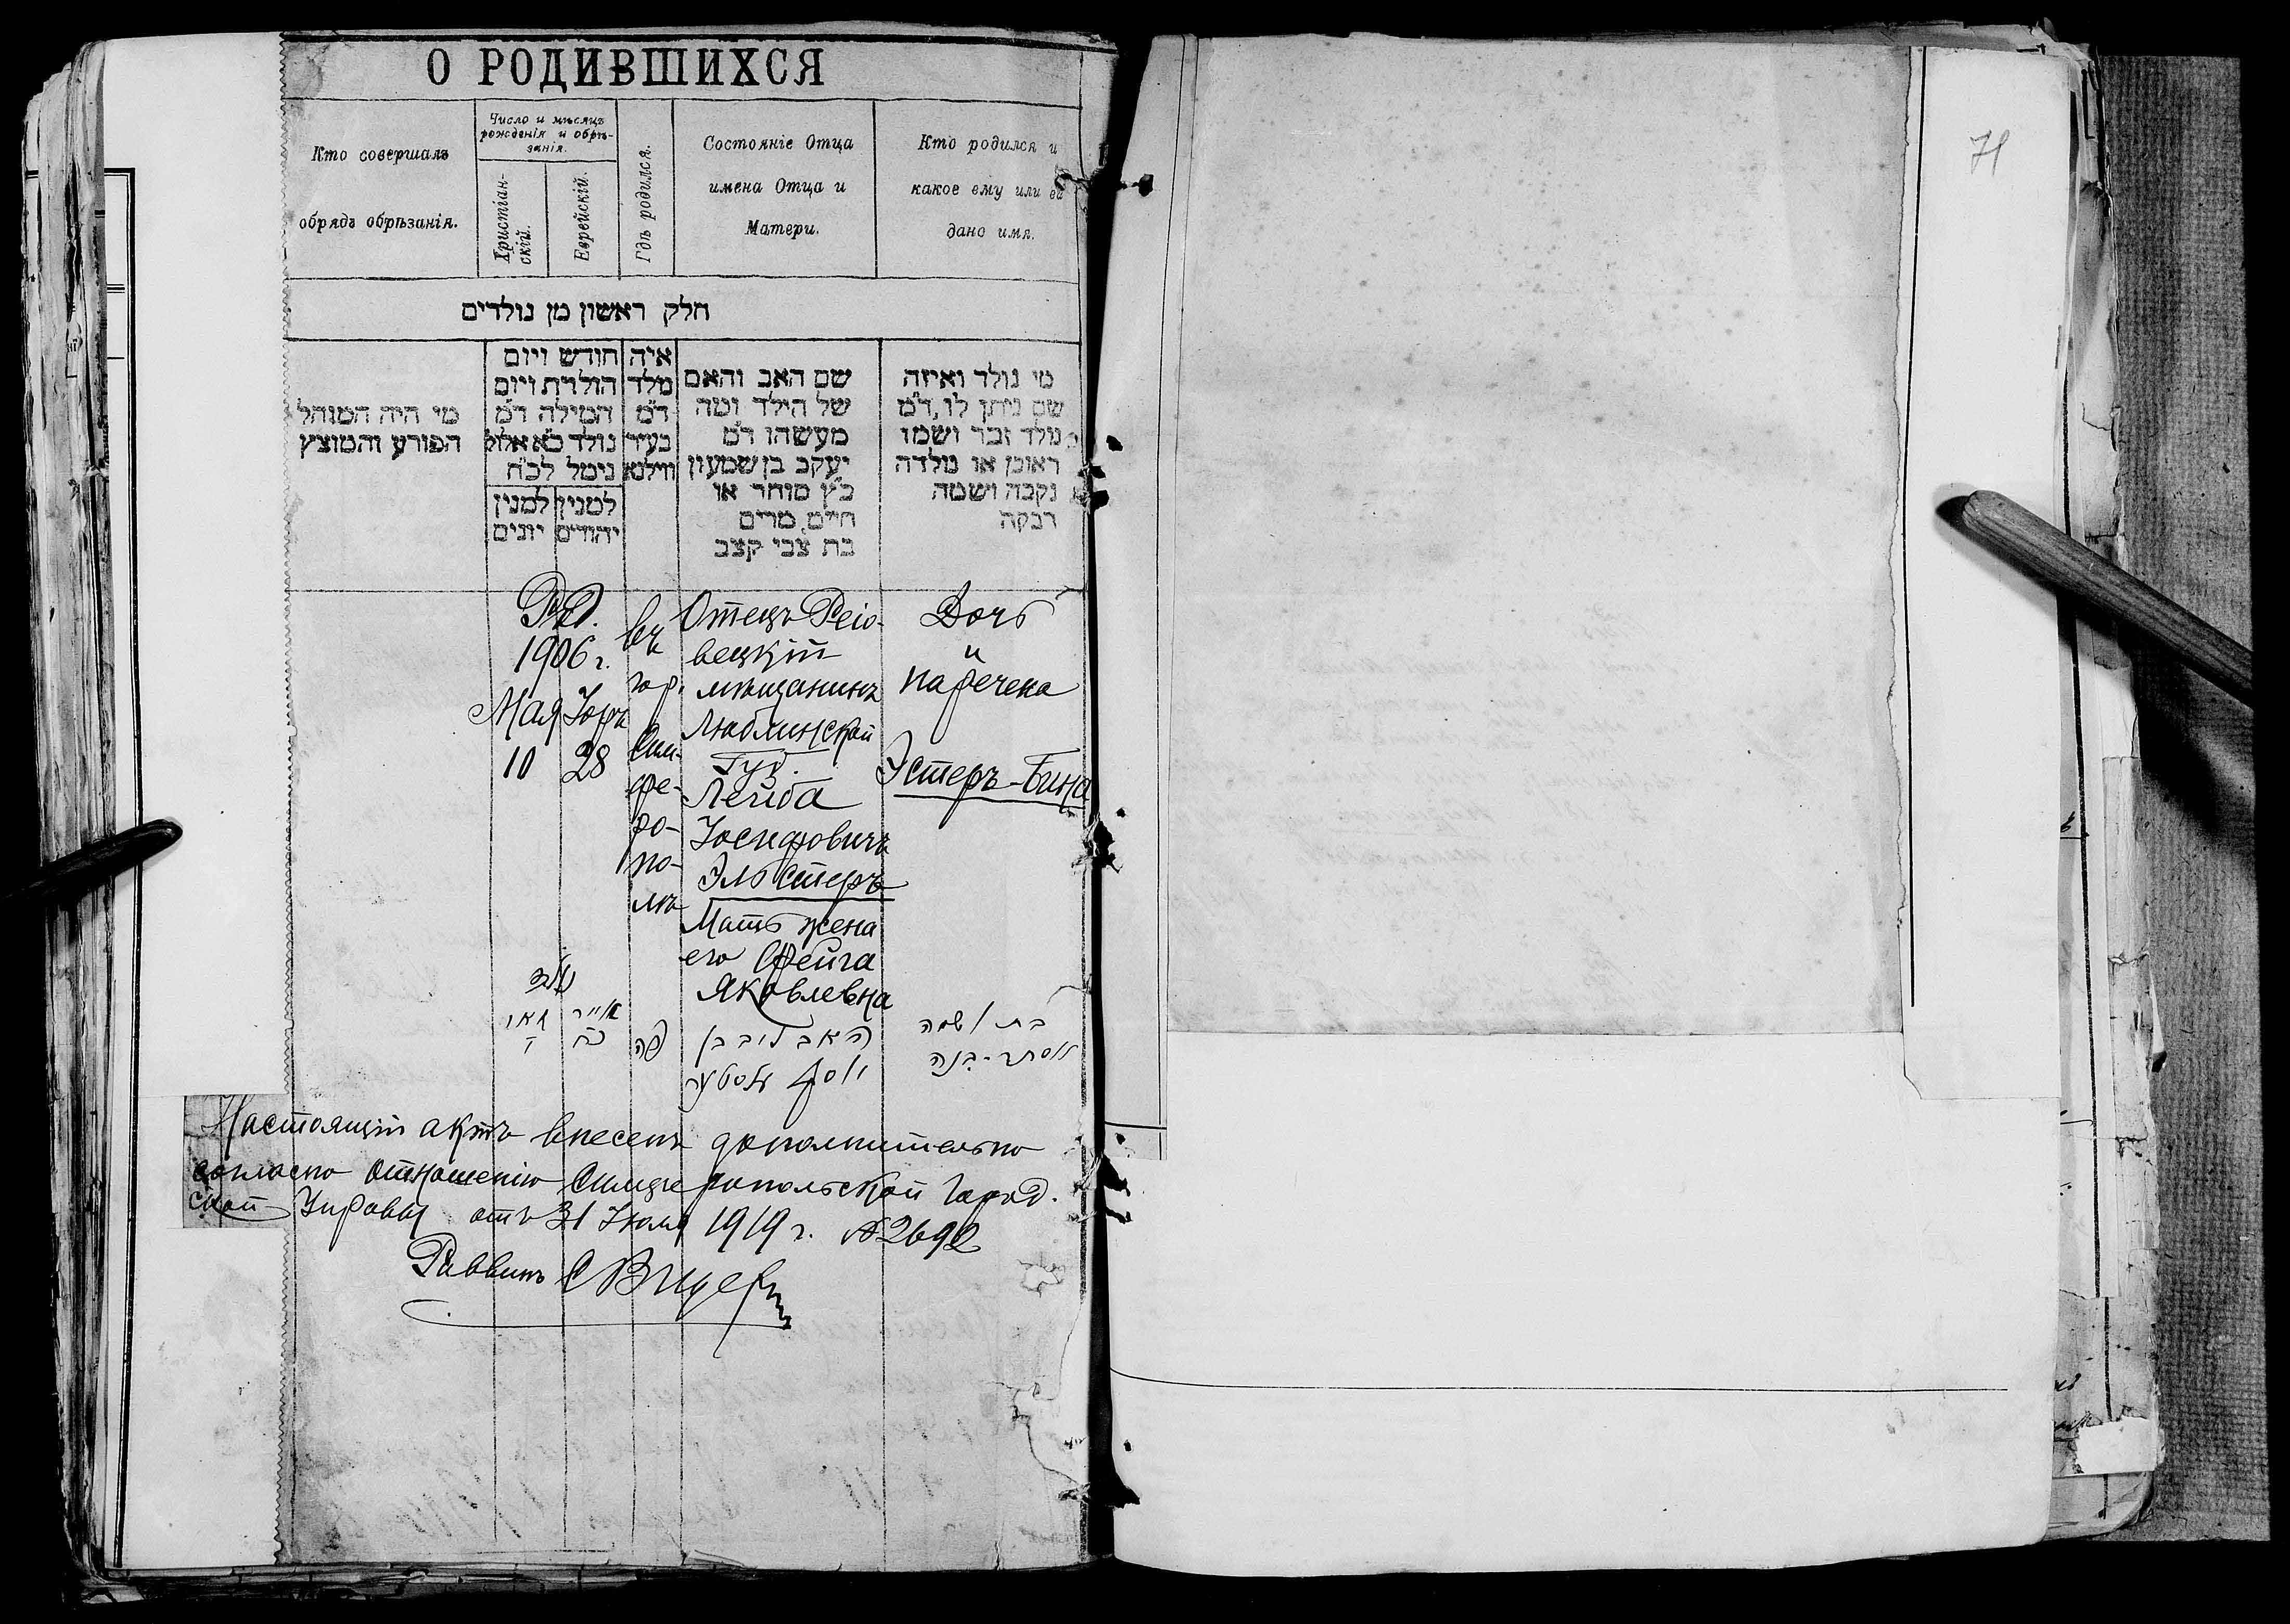 О РОДИВШИХСЯ
Кто совершалъ
обрядъ обрѣзанія.
Число и мѣсяцъ
рожденія и обрѣ-
занія.
Христіан-
скій.
Еврейскій.
Гдѣ родился.
Состояніе Отца
имена Отца и
Матери.
Кто родился и
какое ему или ей
дано имя.
חלק ראשון מן נולדים
מי היה המוהל
הפורע והמוצץ
חודש ויום
הולדת ויום
המילה ד״מ
נולד כ״א אלול
נימל לכ״ח
למנין
יהודים
למנין
יונים
איה
מלד
ד״מ
בעיר
ווילנא
שם האב והאם
של הילד ומה
מעשהו ד״מ
יעקב בן שמעון
כ״ץ סוחר או
חיים, מרים
בת צבי קצב
מי נולד ואיזה
שם ניתן לו, ד״מ
נולד זכר ושמו
ראובן או נולדה
נקבה ושמה
רבקה
1906 г.
Мая
10
Іоръ
28
въ
гор.
Сим-
фе-
ро-
по-
лѣ
Отецъ Реіо-
вецкій
мѣщанинъ
Люблинской
Губ.
Лейба
Іосифовичъ
Эльстеръ
Мать жена
его Фейга
Яковлевна
Дочь
и
наречена
Эстеръ-Бина
מאי
י
אייר
כח
פה
האב ליב בן
יוסף
בת ושמה
אסתר-בינה
Настоящій актъ внесенъ дополнительно
согласно отношенію Симферопольской Город.
ской Управы отъ 31 Іюля 1919 г. №2692
Раввинъ
71